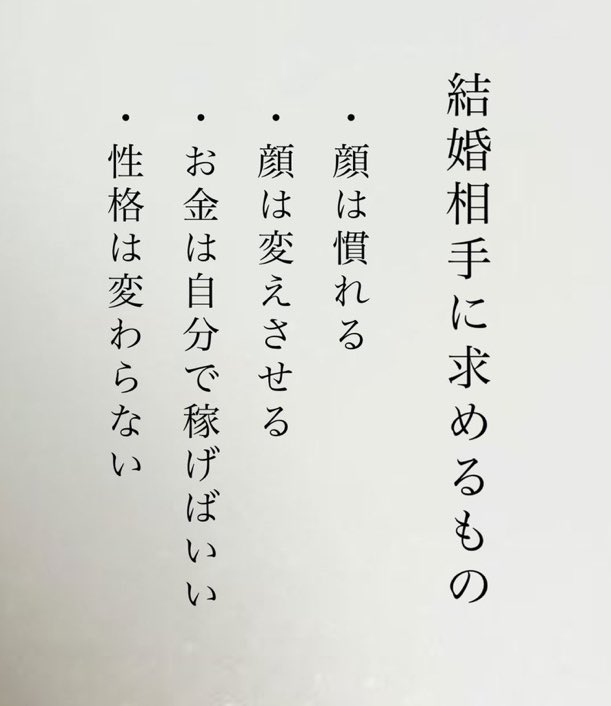 結婚相手に求めるもの
・顔は慣れる
・顔は変えさせる
・お金は自分で稼げばいい
・性格は変わらない